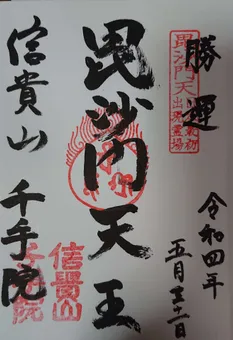 勝運
毘沙門天
出現霊場
令和四年
五月三十一日
毘沙門天王
信貴山
千手院
信貴山
千手院